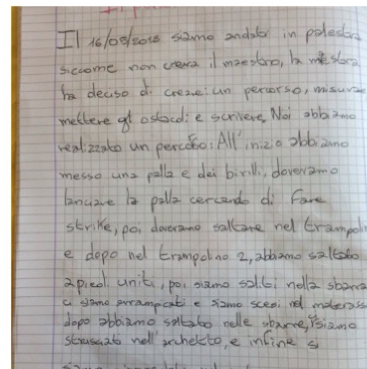 Il 16/05/2018 siamo andati in palestra
siccome non c'era il maestro, la mestra
ha deciso di creare: un percorso, misurare
mettere gl ostacoli e scrivere. Noi abbiamo
realizzato un percorso: All'inizio abbiamo
messo una palla e dei birilli, dovevamo
lanciare la palla cercando di fare
strike, poi dovevamo saltare nel trampolin
e dopo nel trampolino 2, abbiamo saltato
a piedi uniti, poi siamo saliti nella sbarra
ci siamo arrampicati e siamo scesi nel materass
dopo abbiamo saltato nelle sbarre, siamo
nell'archetto, e infine s